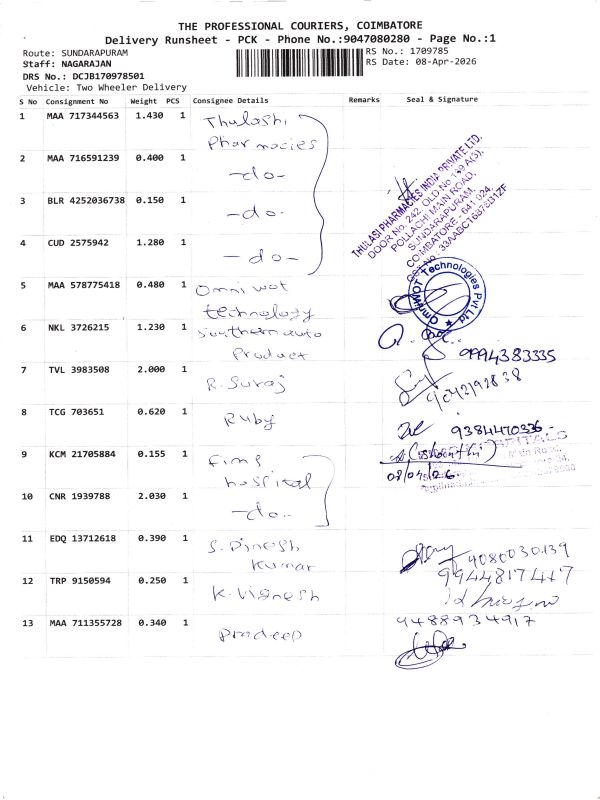 THE PROFESSIONAL COURIERS, COIMBATORE
Delivery Runsheet - PCK - Phone No.:9047080280 - Page No.:1
Route: SUNDARAPURAM
RS No.: 1709785
Staff: NAGARAJAN
RS Date: 08-Apr-2026
DRS No.: DCJB170978501
Vehicle: Two Wheeler Delivery
S No Consignment No Weight PCS Consignee Details Remarks Seal & Signature
1 MAA 717344563 1.430 1 Thulashi
Pharmacies
2 MAA 716591239 0.400 1 -do-
3 BLR 4252036738 0.150 1 -do-
4 CUD 2575942 1.280 1 -do-
THULASI PHARMACIES INDIA PRIVATE LTD.
DOOR No. 242, OLD No.
POLLACHI MAIN ROAD,
SUNDARAPURAM,
COIMBATORE - 641 024.
5 MAA 578775418 0.480 1 Omni wot
technology
OmniWOT Technologies Pvt Ltd
6 NKL 3726215 1.230 1 Southern auto
Product
9994383335
7 TVL 3983508 2.000 1 R. Suraj
8 TCG 703651 0.620 1 Ruby
9384470336
9 KCM 21705884 0.155 1 fims
hospital
08/04/26
10 CNR 1939788 2.030 1 -do-
11 EDQ 13712618 0.390 1 S. Dinesh
Kumar
9080030139
12 TRP 9150594 0.250 1 K. Vignesh
9944817417
13 MAA 711355728 0.340 1 Pradeep
9488934917